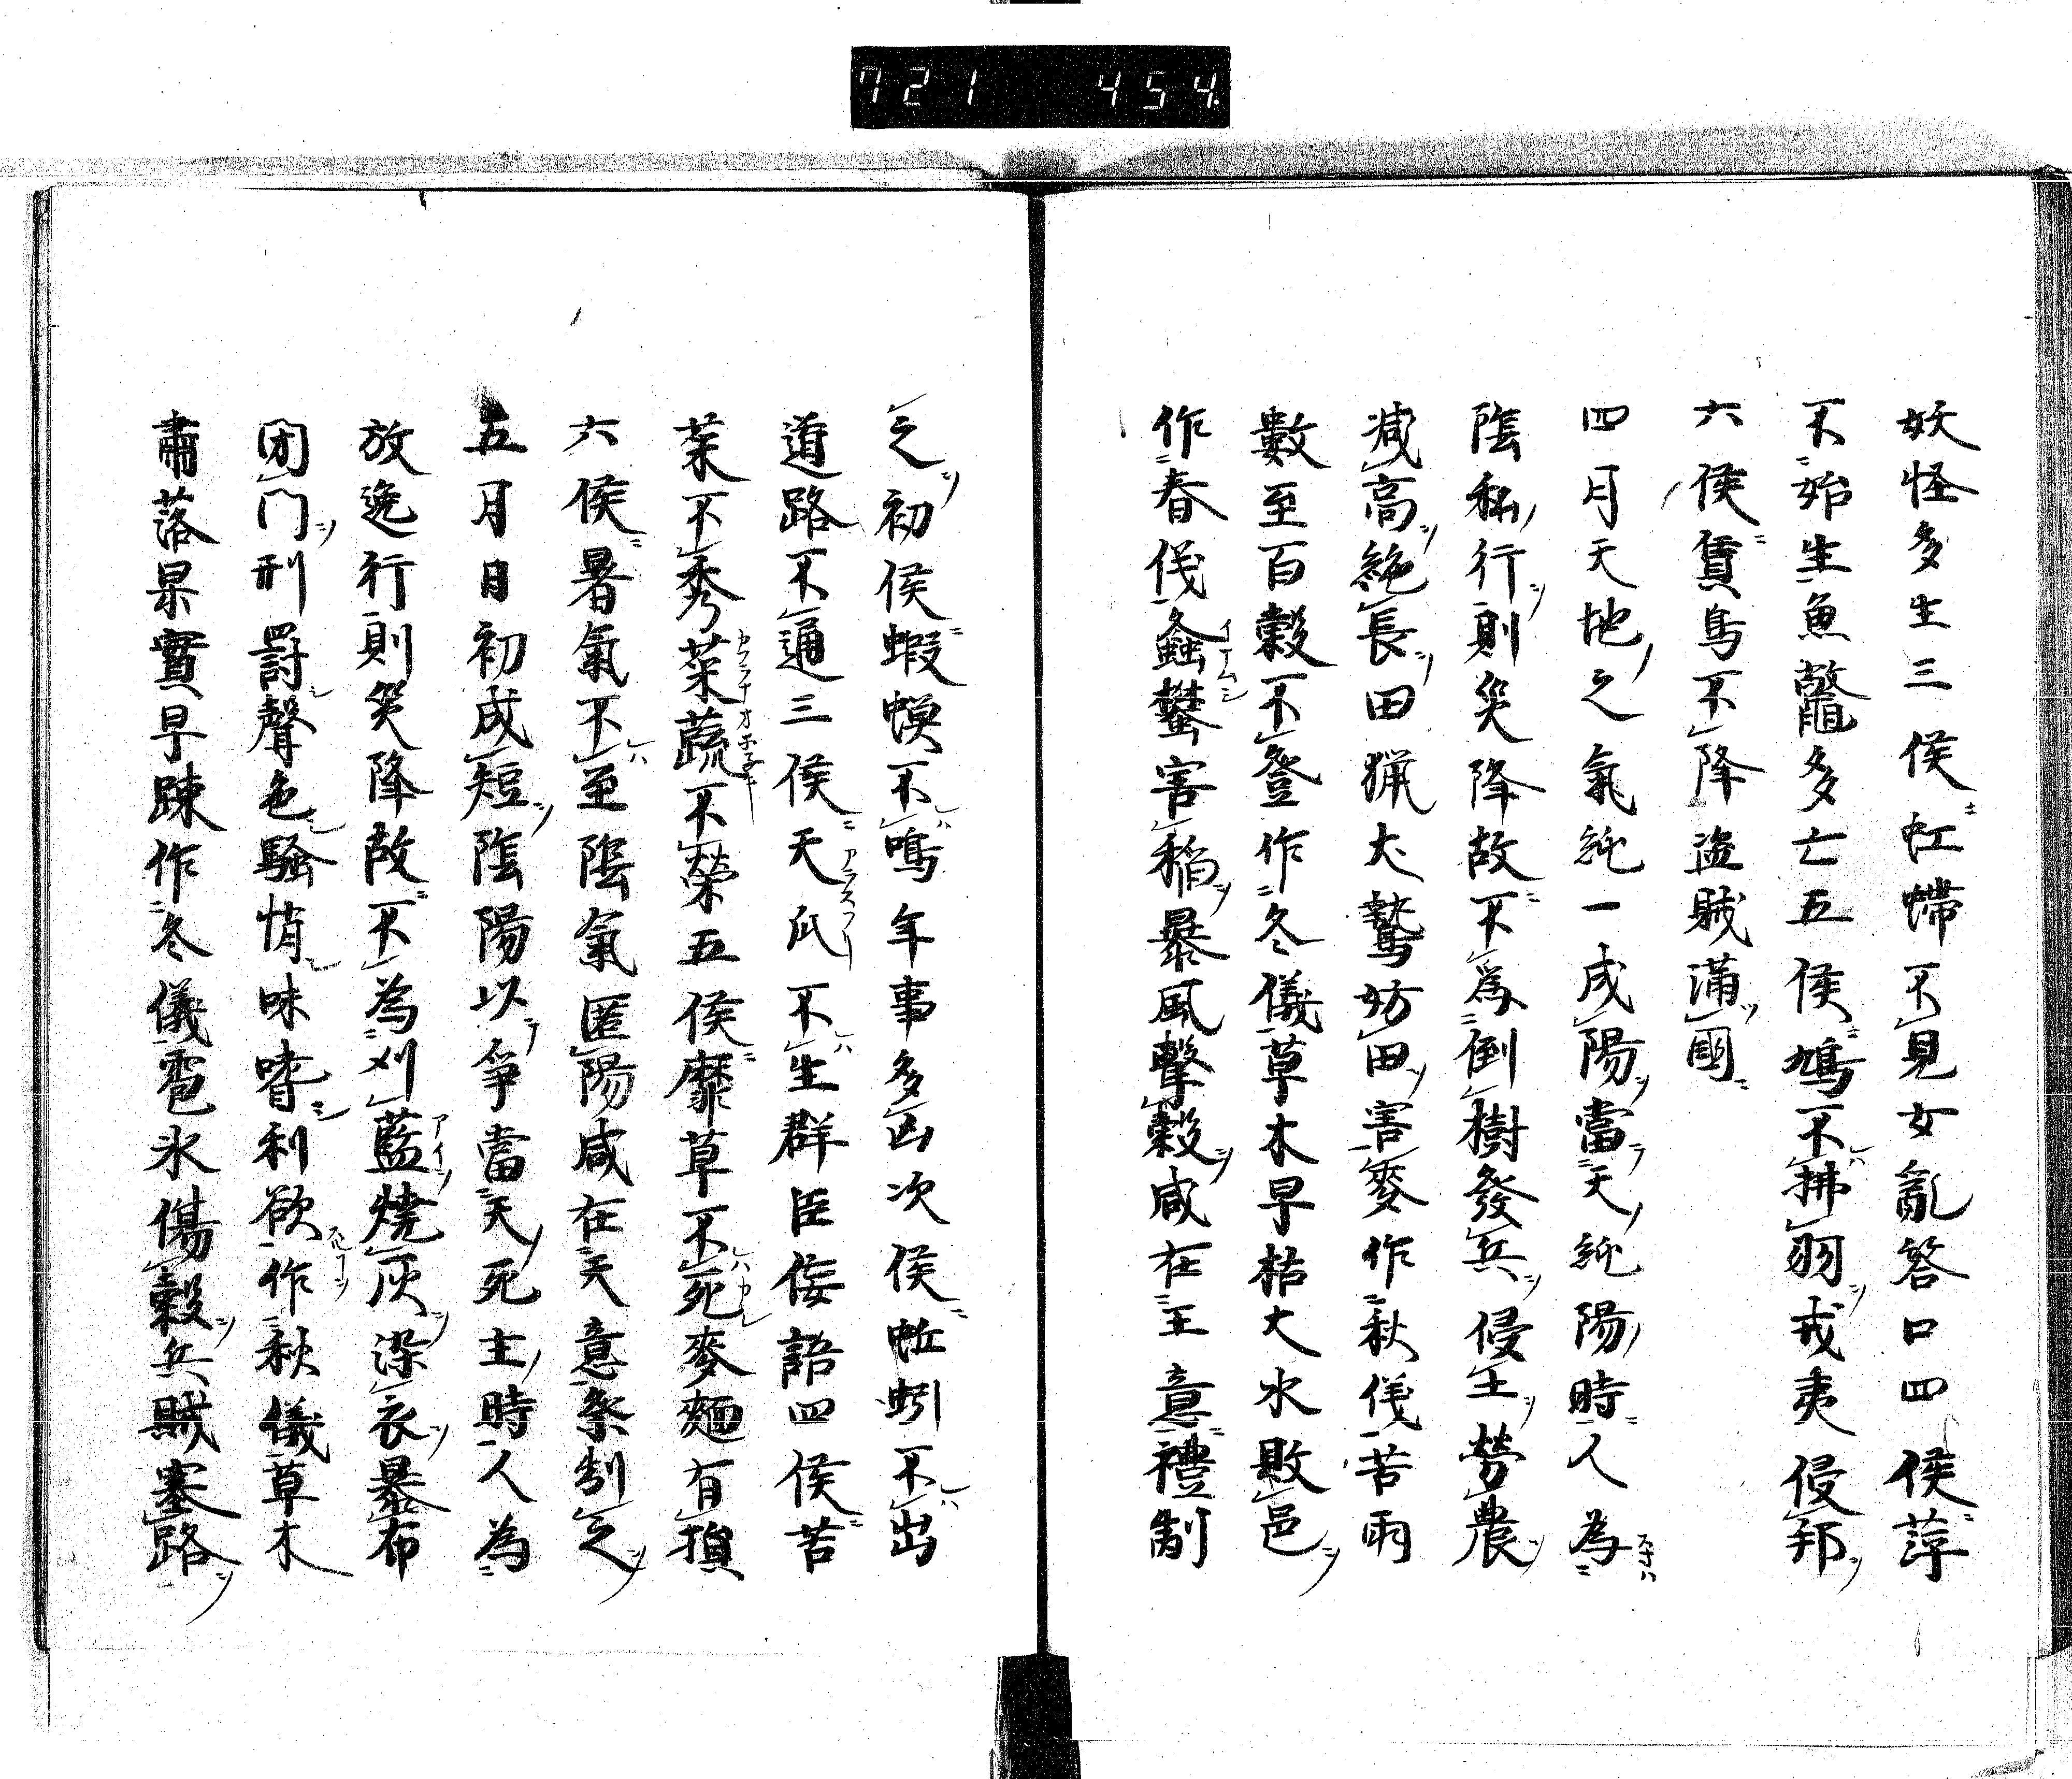 721 454
妖怪多生三侯虹䗖不見女亂答口四侯萍
不始生魚鼈多亡五侯鳩不拂羽戎夷侵邦
六侯賃鳥不降盗賊滿國
四月天地之氣純一成陽當天純陽時人為
陰私行則災降故不為倒樹發兵侵王勞農
減高絶長田猟大驚妨田害麥作秋儀苦雨
數至百穀不登作冬儀草木早枯大水敗邑
作春儀蟊害稲暴風擊穀咸在王意禮制
之初侯蝦蟆不鳴年事多凶次侯蚯蚓不出
道路不通三侯天瓜不生群臣侫語四侯苦
菜不秀菜蔬不榮五侯靡草不死麥麺有損
六侯暑氣不至陰氣匿陽咸在天意祭制之
五月日初成短陰陽以爭當天死主時人為
放逸行則災降故不為刈藍焼灰染衣暴布
閉門刑罰聲色騒情味嗜利欲作秋儀草木
肅落果實早踈作冬儀雹氷傷穀兵賊塞路